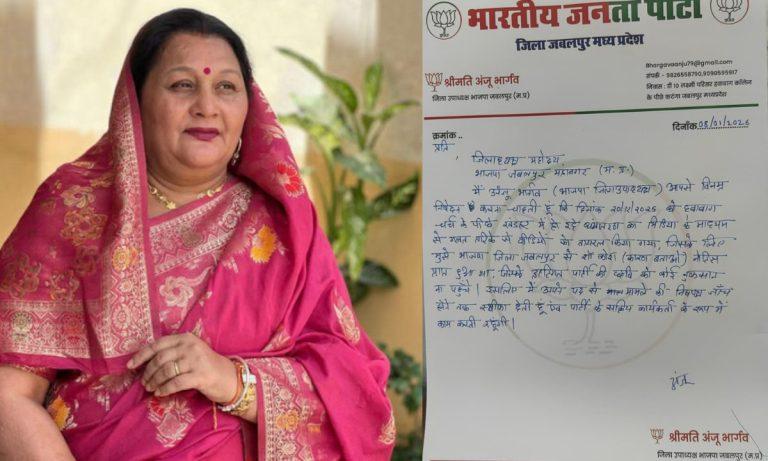 भारतीय जनता पार्टी
जिला जबलपुर मध्य प्रदेश
Bhargavaanju79@gmail.com
श्रीमति अंजू भार्गव
जिला उपाध्यक्ष भाजपा जबलपुर (म.प्र)
संपर्क - 9826558790,9090595917
निवास : डी 10 लक्ष्मी परिसर हवाबाग कॉलेज
के पीछे कटंगा जबलपुर मध्यप्रदेश
क्रमांक..
दिनाँक 05/01/2026
प्रति
जिलाध्यक्ष महोदय
भाजपा जबलपुर महानगर (म.प्र.)
मैं अंजू भार्गव (भाजपा जिलाउपाध्यक्ष) आपसे विनम्र
निवेदन करना चाहती हूँ कि दिनांक 20/12/2025 को हवाबाग
चर्च के पीछे में हो रहे का मिडिया के माध्यम
से गलत तरिके से वीडियो को वायरल किया गया, जिसके लिए
मुझे भाजपा जिला जबलपुर से शो कॉज (कारण बताओ) नोटिस
प्राप्त हुआ था, जिसके पार्टी की छवि को कोई नुकसान
ना पहुंचे। इसलिए मैं अपने पद से मामले की निष्पक्ष जाँच
होने तक स्तीफा देती हूँ एवं पार्टी के सक्रिय कार्यकर्ता के रूप में
काम करती रहूंगी।
अंजू
श्रीमति अंजू भार्गव
जिला उपाध्यक्ष भाजपा जबलपुर (म.प्र)